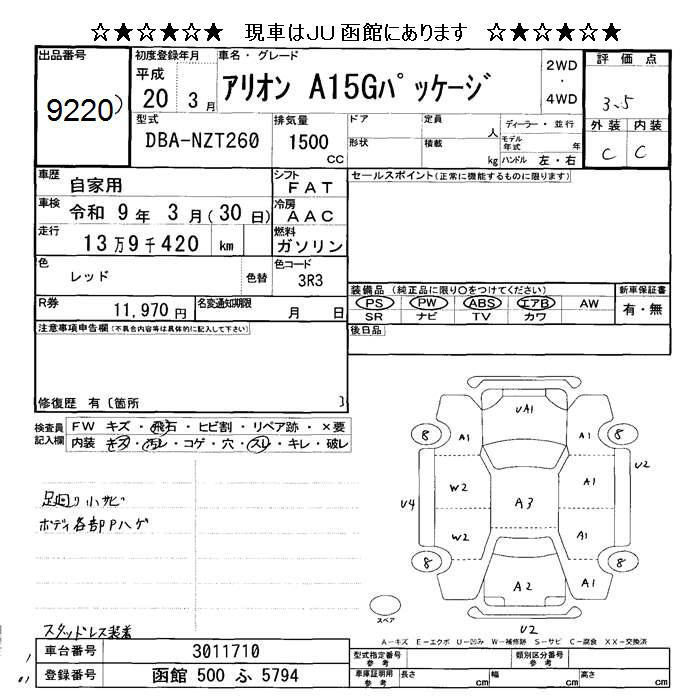 ☆★☆★☆★ 現車はJU函館にあります ☆★☆★☆★
出品番号
9220
初度登録年月
平成
20 3月
車名・グレード
アリオン A15Gパッケージ
2WD
・
4WD
評価点
3.5
外装 内装
C C
型式
DBA-NZT260
排気量
1500
CC
ドア
形状
定員
人
積載
kg
ディーラー・並行
モデル年式 年
ハンドル 左・右
車歴
自家用
シフト
FAT
車検
令和 9年 3月(30日)
冷房
AAC
走行
13万9千420 km
燃料
ガソリン
色
レッド
色替
色コード
3R3
R券
11,970円
名変通知期限
月 日
セールスポイント(正常に機能するものに限ります)
装備品 (純正品に限り○をつけてください)
PS PW ABS エアB AW
SR ナビ TV カワ
新車保証書
有・無
後日品
注意事項申告欄(不具合内容等は具体的に記入して下さい)
修復歴 有〔箇所 〕
検査員
記入欄
FW キズ・飛石・ヒビ割・リペア跡・×要
内装 キズ・汚レ・コゲ・穴・スレ・キレ・破レ
足回り小サビ
ボディ各部PPハゲ
スタッドレス装着
UA1
8 A1 A1 8
U2
W2 A1
U4
A3
W2 A1
8 A1 A1 8
A2
U2
スペア
A-キズ E-エクボ U-凹み W-補修跡 S-サビ C-腐食 XX-交換済
車台番号
3011710
登録番号
函館 500 ふ 5794
型式指定番号
参考
類別区分番号
参考
車庫証明用
参考
長さ cm
幅 cm
高さ cm